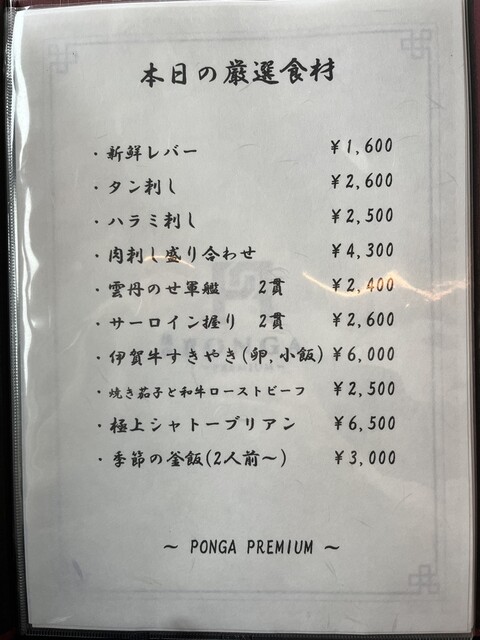 本日の厳選食材
・新鮮レバー ¥1,600
・タン刺し ¥2,600
・ハラミ刺し ¥2,500
・肉刺し盛り合わせ ¥4,300
・雲丹のせ軍艦 2貫 ¥2,400
・サーロイン握り 2貫 ¥2,600
・伊賀牛すきやき(卵,小飯) ¥6,000
・焼き茄子と和牛ローストビーフ ¥2,500
・極上シャトーブリアン ¥6,500
・季節の釜飯(2人前~) ¥3,000
~ PONGA PREMIUM ~